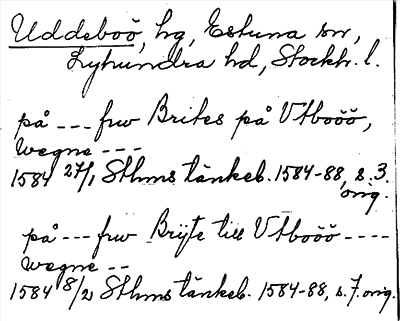 Uddeboö, hg, Estuna sn,
Lyhundra hd, Stockh. l.
på --- frw Brites på Vtbooö,
wegne ---
1584 27/1 Sthms tänkeb. 1584-88, s. 3.
orig.
på --- frw Brijte till Vtbooö ----
wegne --
1584 8/2 Sthms tänkeb. 1584-88, s. 7. orig.